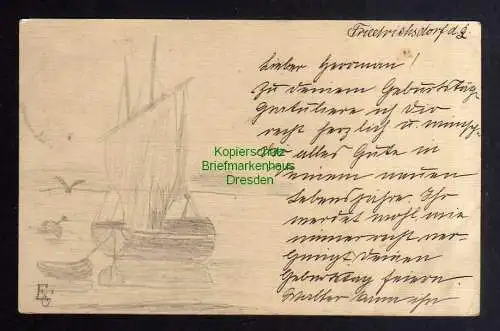 Friedrichsdorf d. 2
Lieber Herrman!
Zu deinem Geburtstag
gratuliere ich dir
recht herzlich u. wünsch
dir alles Gute in
deinem neuen
Lebensjahre. Ihr
werdet wohl wie
immer recht ver-
gnügt deinen
Geburtstag feiern.
Walter kann ihn
Kopierschutz
Briefmarkenhaus
Dresden